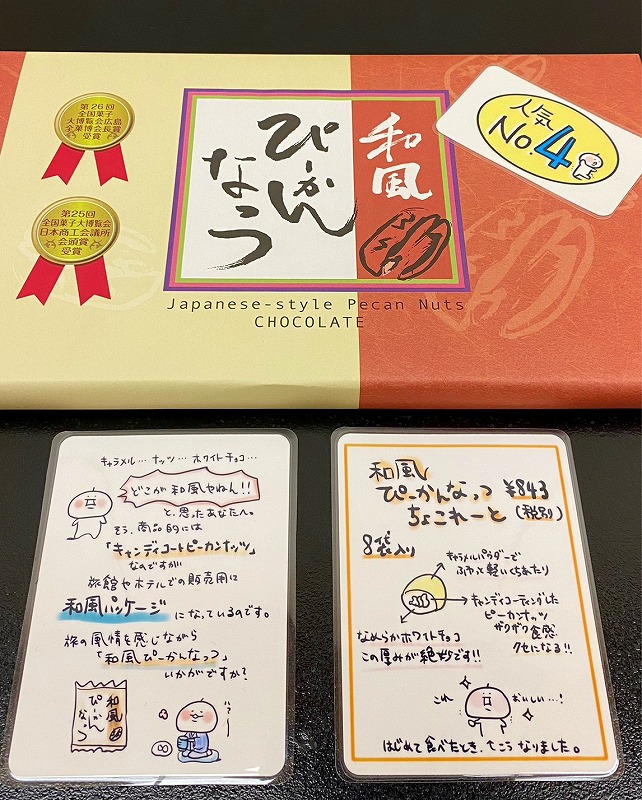 第26回
全国菓子
大博覧会広島
全菓博会長賞
受賞
第25回
全国菓子大博覧会
日本商工会議所
会頭賞
受賞
和風
ぴーかん
なっつ
Japanese-style Pecan Nuts
CHOCOLATE
人気
No.4
キャラメル…ナッツ…ホワイトチョコ…
どこが和風やねん!!
と、思ったあなたへ。
そう、商品的には
「キャンディコートピーカンナッツ」
なのですが
旅館やホテルでの販売用に
和風パッケージ
になっているのです。
旅の風情を感じながら
「和風ぴーかんなっつ」
いかがですか?
和風
ぴーかん
なっつ
和風
ぴーかんなっつ
ちょこれーと
¥843
(税別)
8袋入り
キャラメルパウダーで
ふわっと軽いくちあたり
キャンディコーティングした
ピーカンナッツ
ザクザク食感
クセになる!!
なめらかホワイトチョコ
この厚みが絶妙です!!
これ
おいしい…!
はじめて食べたとき、こうなりました。